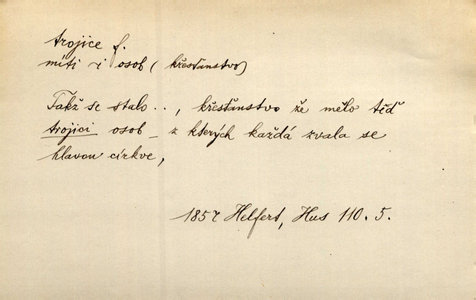 trojice f.
míti -i osob (křesťanstvo)
Takž se stalo . . , křesťanstvo že mělo teď
trojici osob – z kterých každá zvala se
hlavou církve,
1857 Helfert, Hus 110. 5.